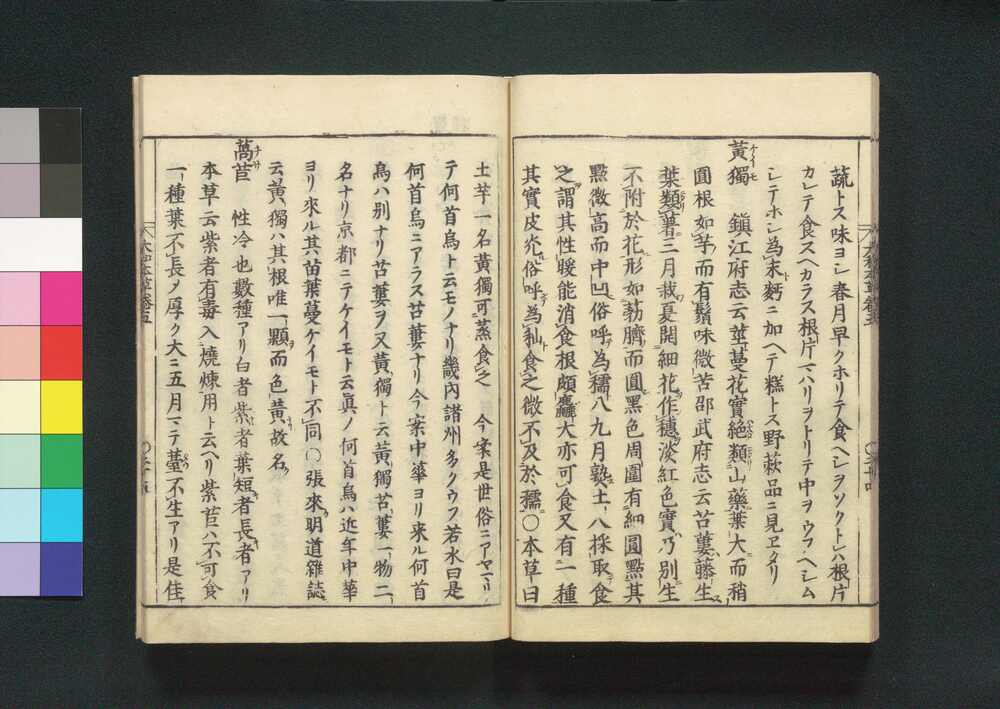 蔬トス味ヨシ春月早クホリテ食ヘシヲソクトレハ根片
カレテ食スヘカラス根片ハハリヲトリテ中ヲウカヘシム
シテホシ為末麪ニ加ヘテ糕トス野蔌品ニ見エタリ
黃獨 鎮江府志云莖蔓花實絕類山藥葉大而稍
圓根如芋而有鬚味微苦邵武府志云苦蔞藤生
葉類薯三月栽夏開細花作穗淡紅色實乃別生
不附於花形如荔臍而圓黑色周圍有細圓點其
點微高而中凹俗呼為孺八九月熟土人採取食
之謂其性暖能消食根頗麤大亦可食又有一種
其實皮光俗呼為私食之微不及於孺○本草曰
土芋一名黃獨可蒸食之 今案是世俗ニアヤマリ
テ何首烏ト云モノナリ畿內諸州多クウフ若水曰是
何首烏ニアラス苦蔞ナリ今案中華ヨリ来ル何首
烏ハ別ナリ苦蔞ヲ又黃獨ト云黃獨苦蔞一物二
名ナリ京都ニテケイモト云眞ノ何首烏ハ近年中華
ヨリ來ル其苗葉蔓ケイモト不同○張來明道雜誌
云黃獨ハ其根唯一顆而色黃故名
萵苣 性冷也數種アリ白者紫者葉短者長者アリ
本草云紫者有毒入燒煉用ト云ヘリ紫苣ハ不可食
一種葉不長ノ厚ク大ニ五月マテ薹不生アリ是佳